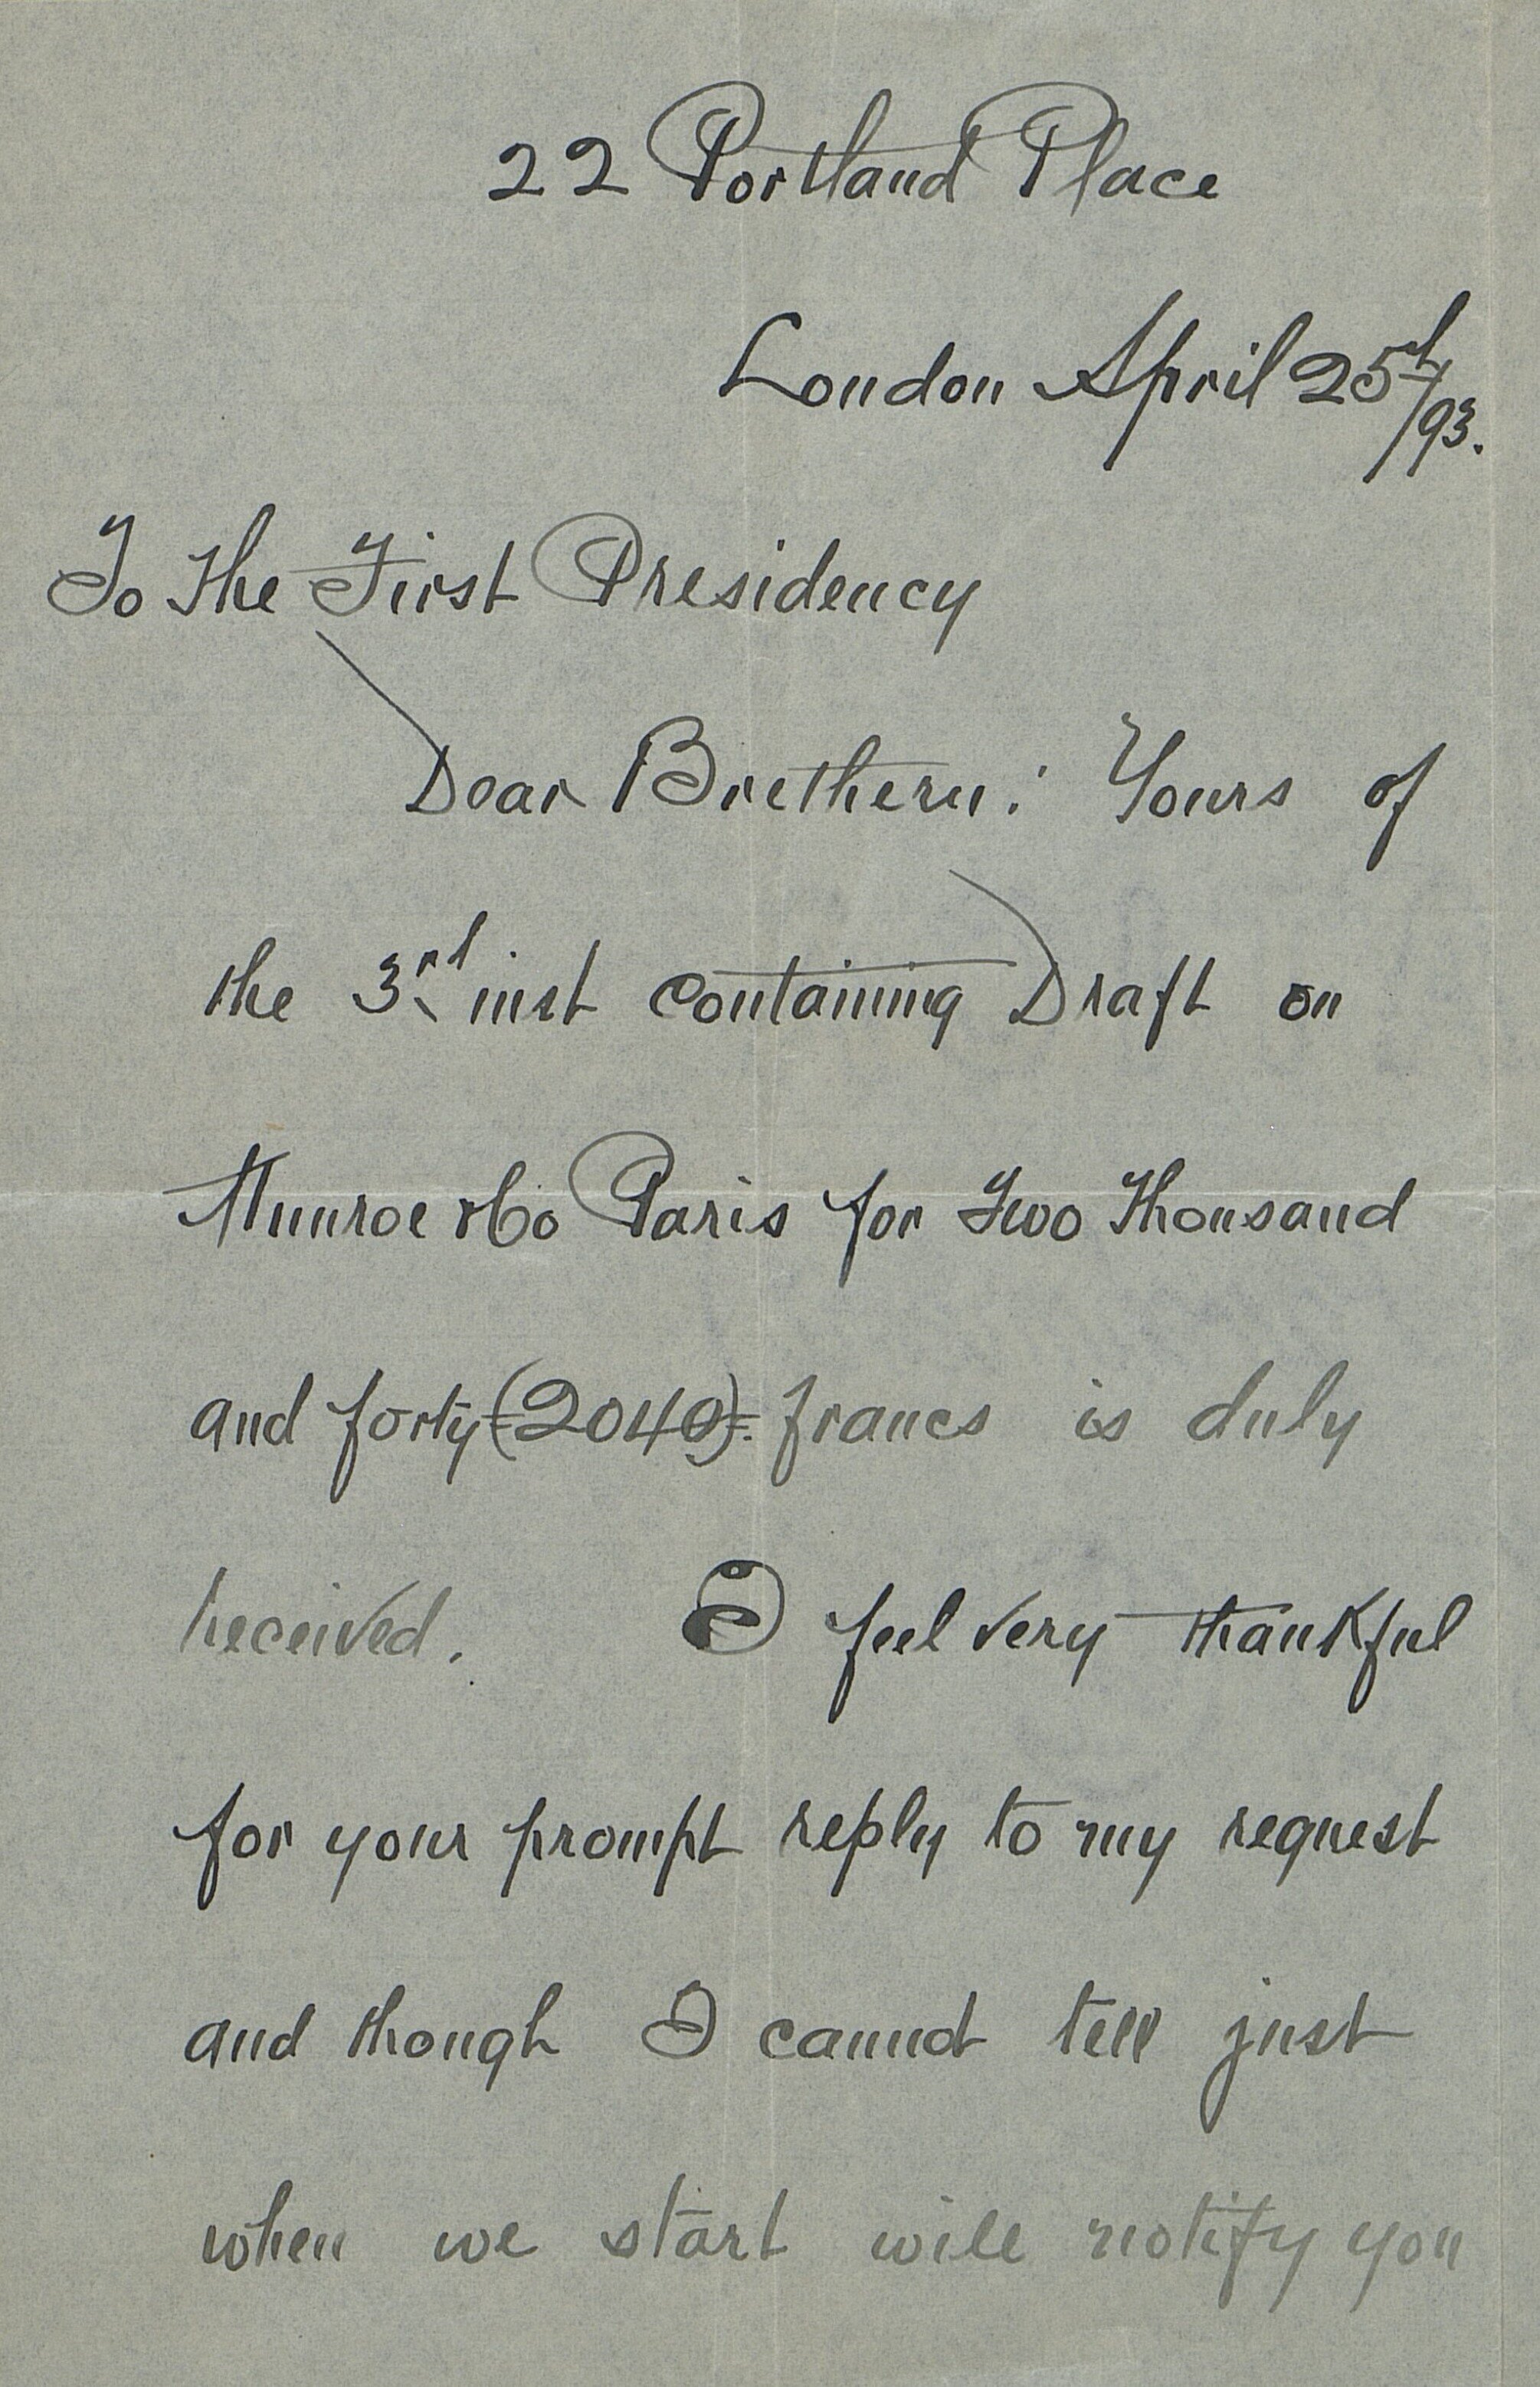 22 Portland Place
London April 25th/93.
To The First Presidency
Dear Brethern: Yours of
the 3rd inst containing Draft on
Munroe & Co Paris for Two Thousand
and forty (2040). francs is duly
received. I feel very thankful
for your prompt reply to my request
and though I cannot tell just
when we start will notify you